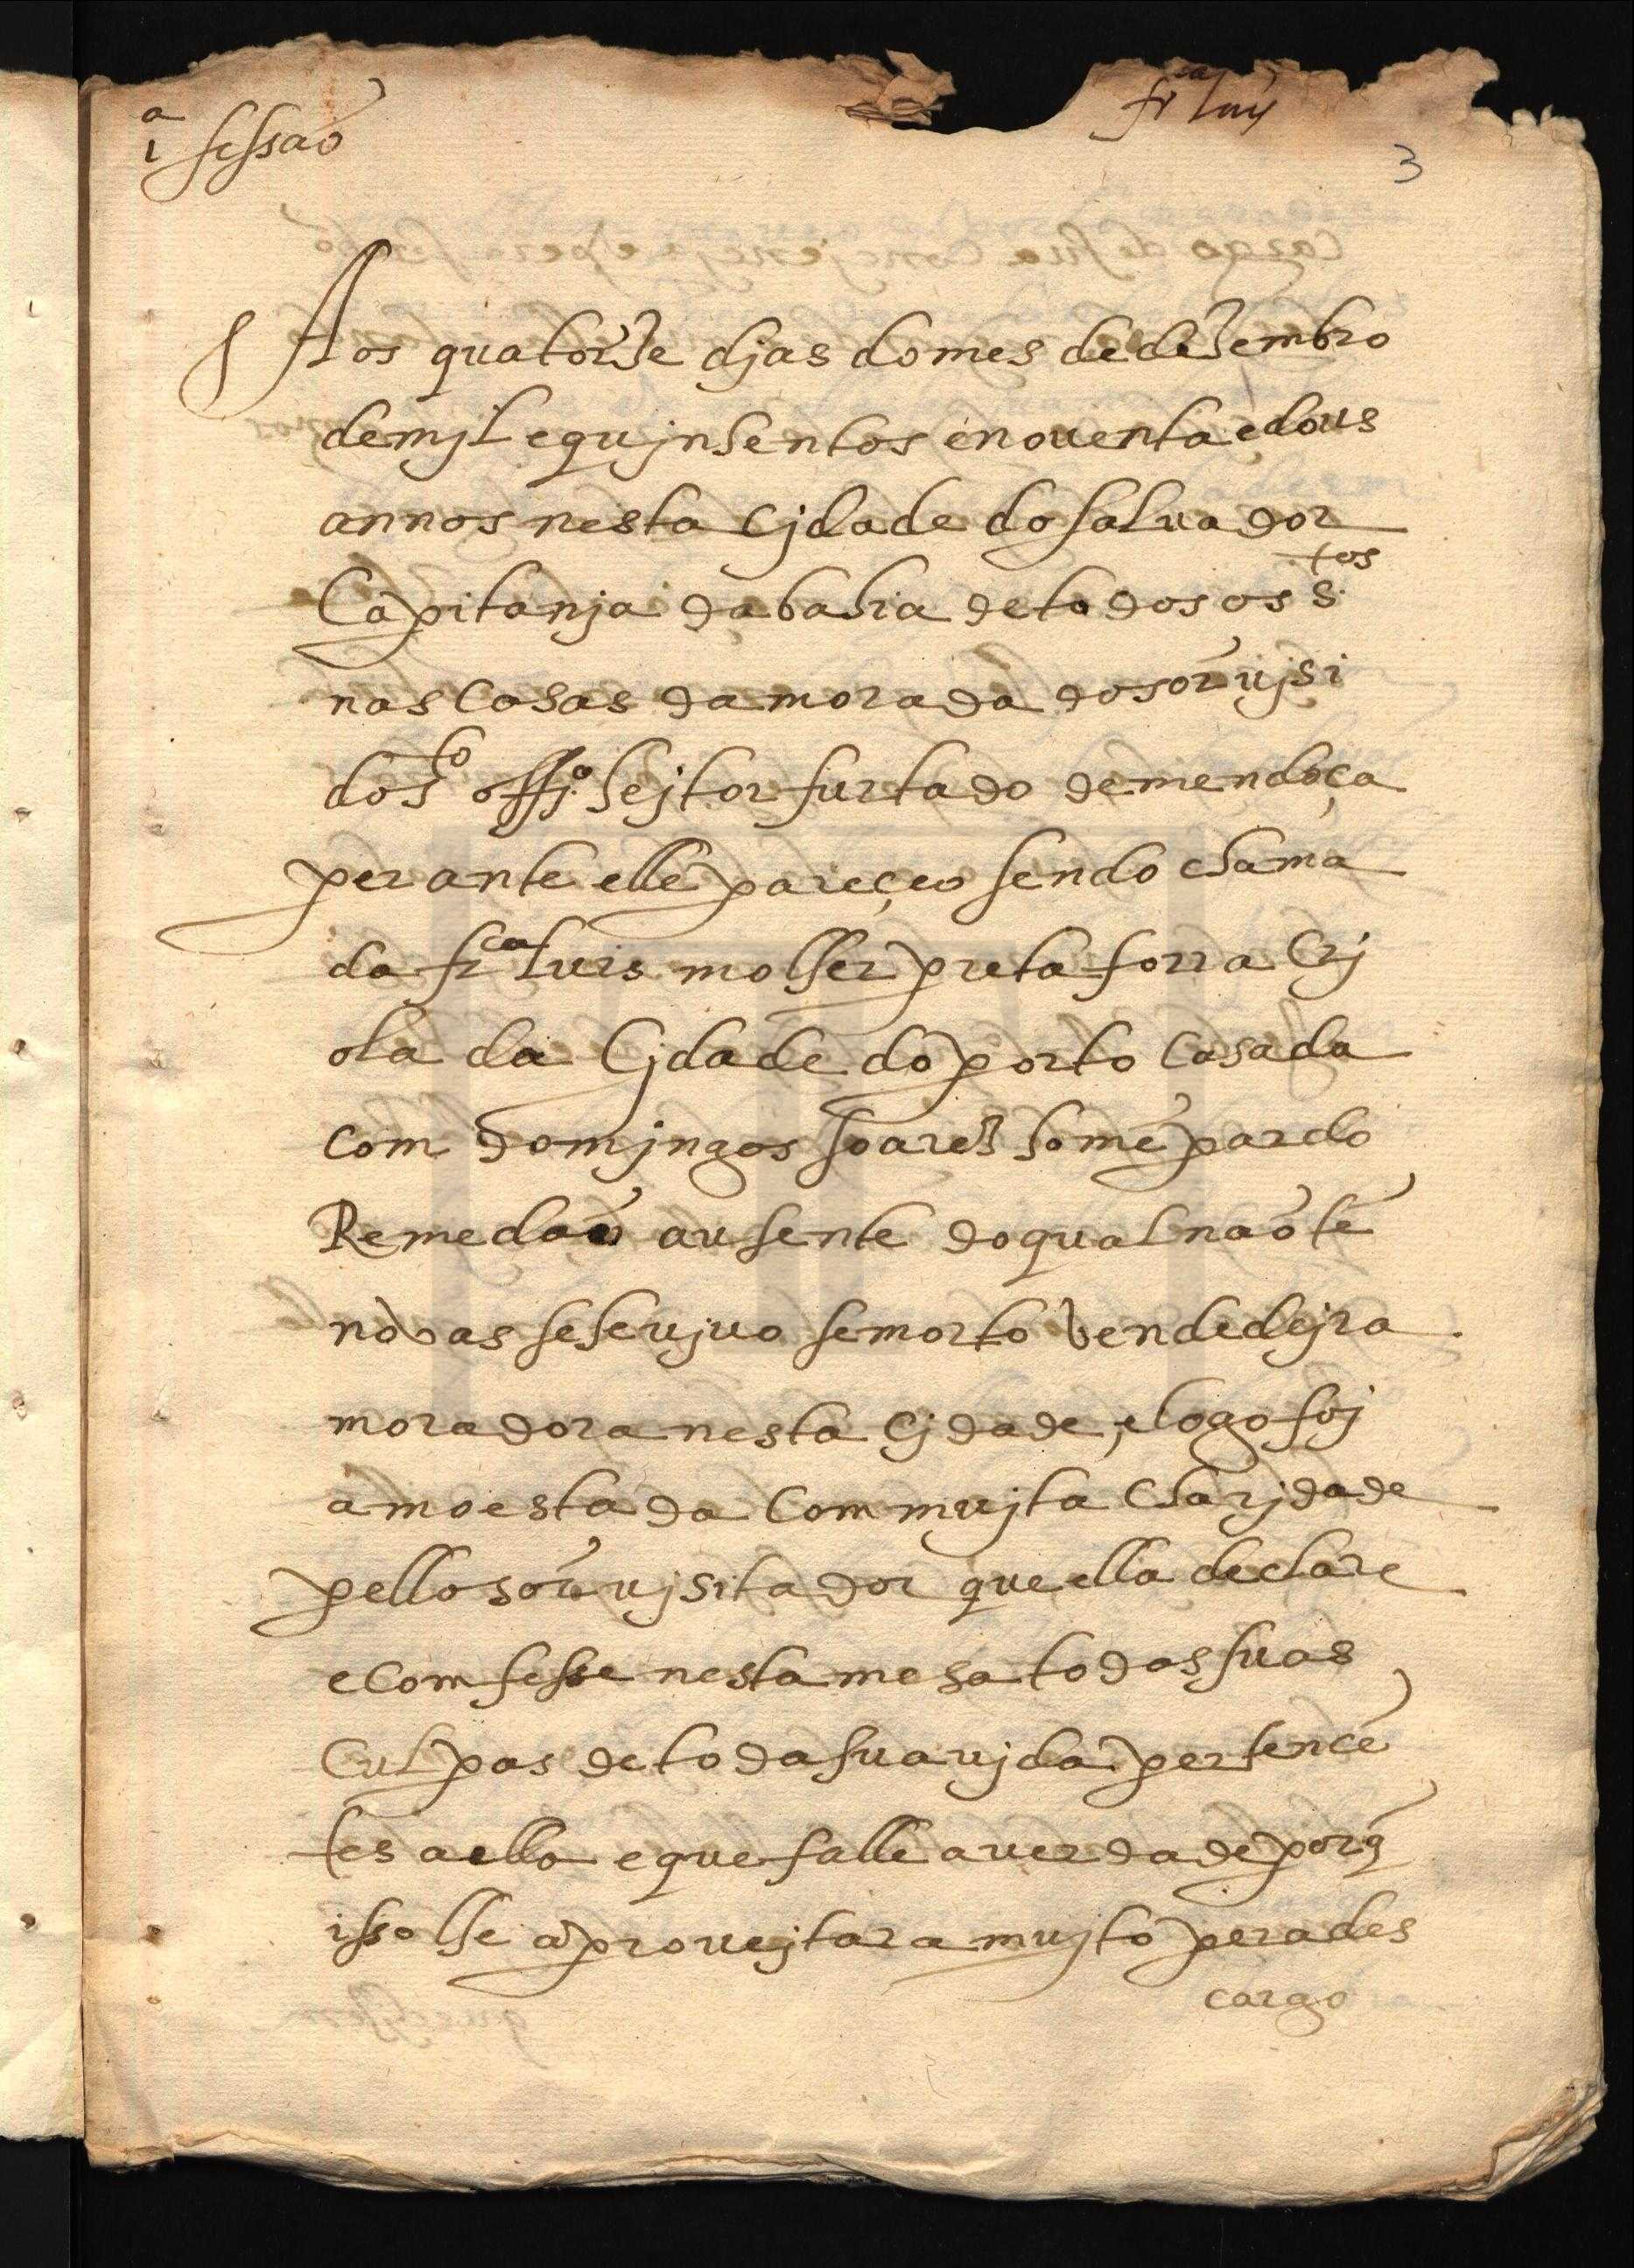 1ª sessaõ
fr.ca luis
3
Aos quatorze djas do mes de dezembro
de mjl e qujnhentos e nouenta e dous
annos nesta cjdade do saluador
Capitanja da bahia de todos os s.tos
nas casas da morada do sõr ujsi
do s.to offj.o heitor furtado de mendoça
perante elle pareçeo sendo chama
da fr.ca luis molher preta forra crj
ola da cjdade do porto casada
com domjngos soarez homẽ pardo
Remedaõ ausente do qual naõ tẽ
novas se he ujuo se morto vendedejra
moradora nesta cjdade, e logo foj
amoestada com mujta charjdade
pello sõr ujsitador que ella declare
e comfesse nesta mesa todas suas
Culpas de toda sua ujda pertencẽ
tes a ella e que falle a uerdade porq̃
isso lhe aproueitara mujto pera des
cargo